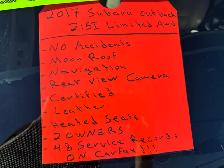 2017 Subaru outback
2.5I Limited AWD
-NO Accidents
- Moon Roof
- Navigation
- Rear View Camera
- Certified
- Leather
- Heated Seats
- 2 OWNERS
- 48 Service Records
ON CarFax!!!